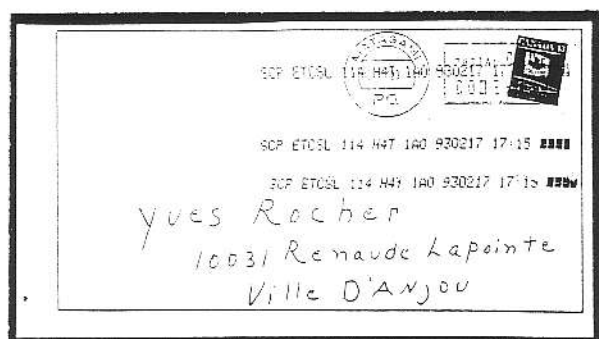 MATAGAMI
PQ
SCP ETCSL 114 H4T 1A0 930217
SCP ETCSL 114 H4T 1A0 930217 17:15
SCP ETCSL 114 H4T 1A0 930217 17:15
Yves Rocher
10031 Renaude Lapointe
Ville D'ANJOU